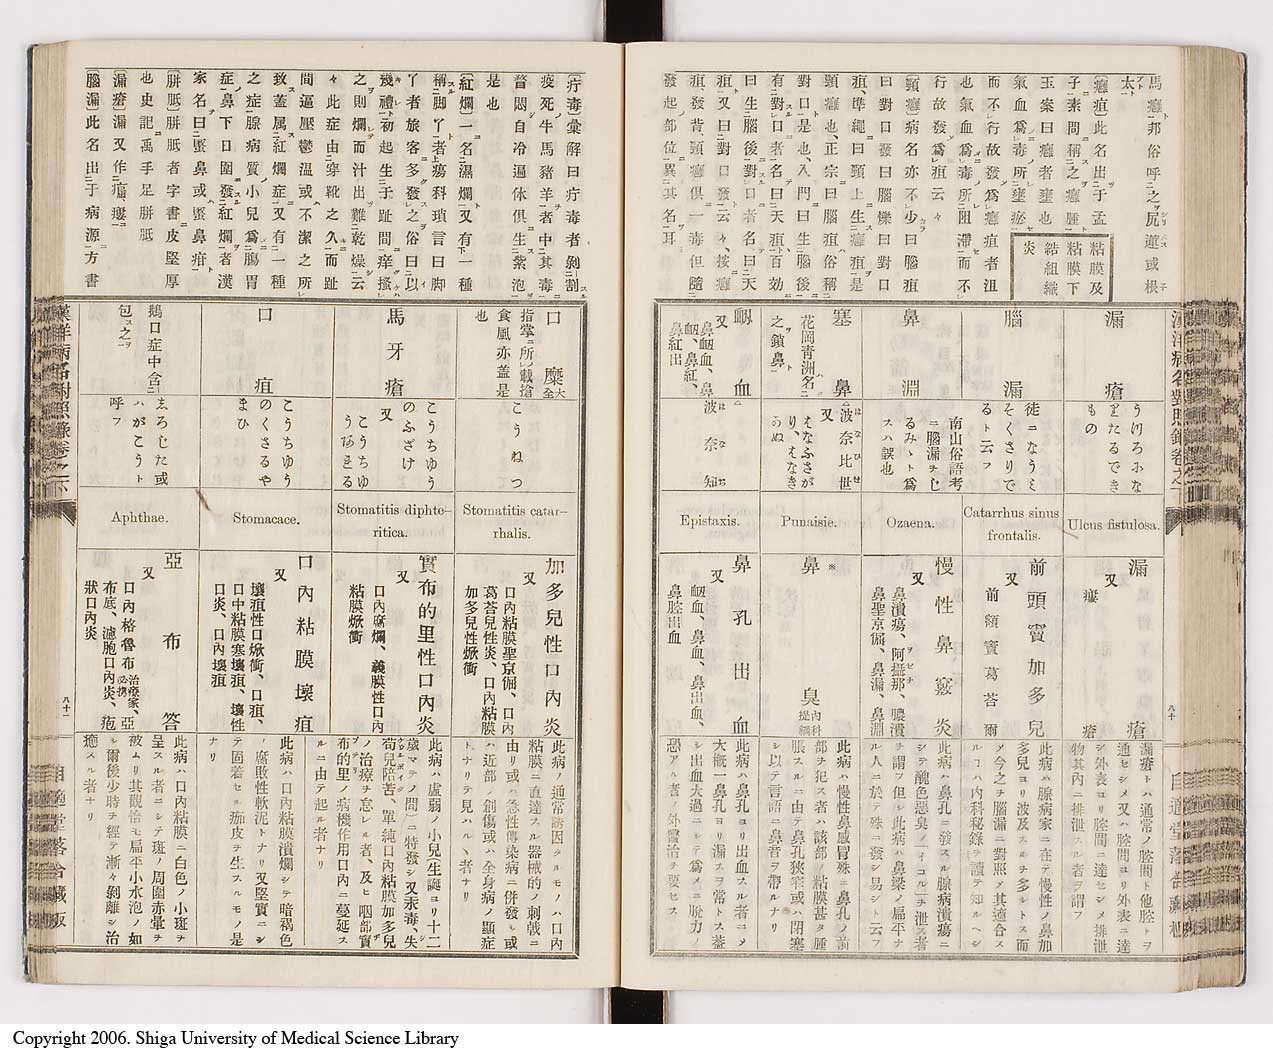 馬癰ト邦俗呼之ヲ尻蓮或根
太ト
癰疽此名出于孟
子素問稱之癰腫
玉案曰癰者壅也
氣血爲毒所壅瘀
而不行故發爲癰疽者沮
也氣血爲毒所阻滯而不
行故發爲疽云々
頸癰病名亦不少曰腦疽
曰對口發曰腦爍曰對口
疽準繩曰頸上生癰疽是
頸癰也、正宗曰腦疽俗稱
對口是也、入門曰生腦後
有對口者名曰天疽百効
曰生腦後對口者名曰天
疽又曰對口發云々、按癰
疽發背、頸癰俱一毒但隨
發起部位異其名耳
粘膜及
粘膜下
結組織
炎
漢洋病名對照錄卷之下
八十
漏瘡
うけろふな
どたるでき
もの
Ulcus fistulosa.
漏瘡
又
瘻瘡
漏瘡トハ通常ノ腔間ト他腔トヲ
通セシメ又ハ腔間ヨリ外表ニ達
シ外表ヨリ腔間ニ達セシメ排泄
物其內ニ排泄スル者ヲ謂フ
腦漏
徒ニなうミ
そくさりで
るト云フ
Catarrhus sinus
frontalis.
前頭竇加多兒
又
前額竇葛荅爾
此病ハ腺病家ニ在テ慢性ノ鼻加
多兒ヨリ波及スルヿ多シトス而
メ今之ヲ腦漏ニ對照メ其適合ス
ルヿハ內科秘錄ヲ讀テ知ルヘシ
鼻淵
南山俗語考
ニ腦漏ヲじ
るみゝト爲
スハ誤也
Ozaena.
慢性鼻竅炎
又
鼻潰瘍、阿攝那、膿潰
鼻聖京偏、鼻漏、鼻淵
此病ハ鼻孔ニ發スル腺病潰瘍ニ
シテ醜色惡臭ノ「イコル」ヲ泄ス者
ヲ謂フ但シ此病ハ鼻梁ノ扁平ナ
ル人ニ於テ殊ニ發シ易シト云フ
塞鼻
花岡青洲名
之鎖鼻ト
波奈比世
又
はなふさが
り、えなき
かぬ
Punaisie.
鼻臭
內科
提綱
此病ハ慢性鼻感冒殊ニ鼻孔ノ前
部ヲ犯ス者ハ該部ノ粘膜甚タ腫
脹スルニ由テ鼻孔狹窄或ハ閉塞
シ以テ言語ニ鼻音ヲ帶ルナリ
衂血
又
鼻衂血、鼻
衂、鼻紅、
鼻紅出
波奈知
Epistaxis.
鼻孔出血
又
衂血、鼻血、鼻出血、
鼻腔出血
此病ハ鼻孔ヨリ出血スル者ニメ
大概一鼻孔ヨリ漏スヲ常トス蓋
シ出血太過ニシテ爲メニ脫力ノ
恐アル者ノ外醫治ヲ要セス
自適堂落合藏板
疔毒彙解曰疔毒者剝割
疫死牛馬豬羊者中其毒
瞀悶自冷遍體俱生紫泡
是也
紅爛一名濕爛又有一種
稱脚丫者瘍科瑣言曰脚
丫者旅客多發之俗曰以
幾禮初起生于趾間痒搔
之則爛而汁出難乾燥云
々此症由穿靴之久而趾
間逼壓鬱溫或不潔之所
致蓋屬紅爛症又有一種
之症腺病質小兒爲膓胃
症鼻下口圍發紅爛者漢
家名曰䘌鼻或䘌鼻疳
胼胝胼胝者字書皮堅厚
也史記禹手足胼胝
漏瘡漏又作瘺瘻
腦漏此名出于病源方書
口糜大全
指掌所載搶
食風亦蓋是
也
こうねつ
Stomatitis catar-
rhalis.
加多兒性口內炎
又
口內粘膜聖京偏、口內
葛荅兒性炎、口內粘膜
加多兒性焮衝
此病ノ通常誘因タルモノハ口內
粘膜ニ直達スル器械的ノ刺戟ニ
由リ或ハ急性傳染病ニ併發シ或
ハ近部ノ創傷或ハ全身病ノ顯症
トナリテ見ハルヽ者ナリ
馬牙瘡
こうちゆう
のふざけ
又
こうちゆ
うたゞれる
Stomatitis diphte-
ritica.
實布的里性口內炎
又
口內腐爛、義膜性口內
粘膜焮衝
此病ハ虛弱ノ小兒生誕ヨリ十二
歲マテノ間ニ特發シ又汞毒、失
荀兒陪苦、單純口內粘膜加多兒
ノ治療ヲ怠レル者、及ヒ咽部實
布的里ノ病機作用口內ニ蔓延ス
ルニ由テ起ル者ナリ
口疽
こうちゆう
のくさるや
まひ
Stomacace.
口內粘膜壞疽
又
壞疽性口焮衝、口疽、
口中粘膜寒壞疽、壞性
口炎、口內壞疽
此病ハ口內粘膜潰爛シテ暗褐色
ノ腐敗性軟泥トナリ又堅實ニシ
テ固着セル痂皮ヲ生スルモノ是
ナリ
鵝口症中含
包ス之ヲ
ゑろじた或
ハがこうト
呼フ
Aphthae.
亞布答
又
口內格魯布治療家必携、亞
布底、濾胞口內炎、疱
狀口內炎
此病ハ口內粘膜ニ白色ノ小斑ヲ
呈スル者ニシテ斑ノ周圍赤暈ヲ
被ムリ其觀恰モ扁平小水泡ノ如
シ爾後少時ヲ經テ漸々剝離シ治
癒スル者ナリ
漢洋病名對照錄卷之下
八十一
自適堂落合藏板
Copyright 2006. Shiga University of Medical Science Library